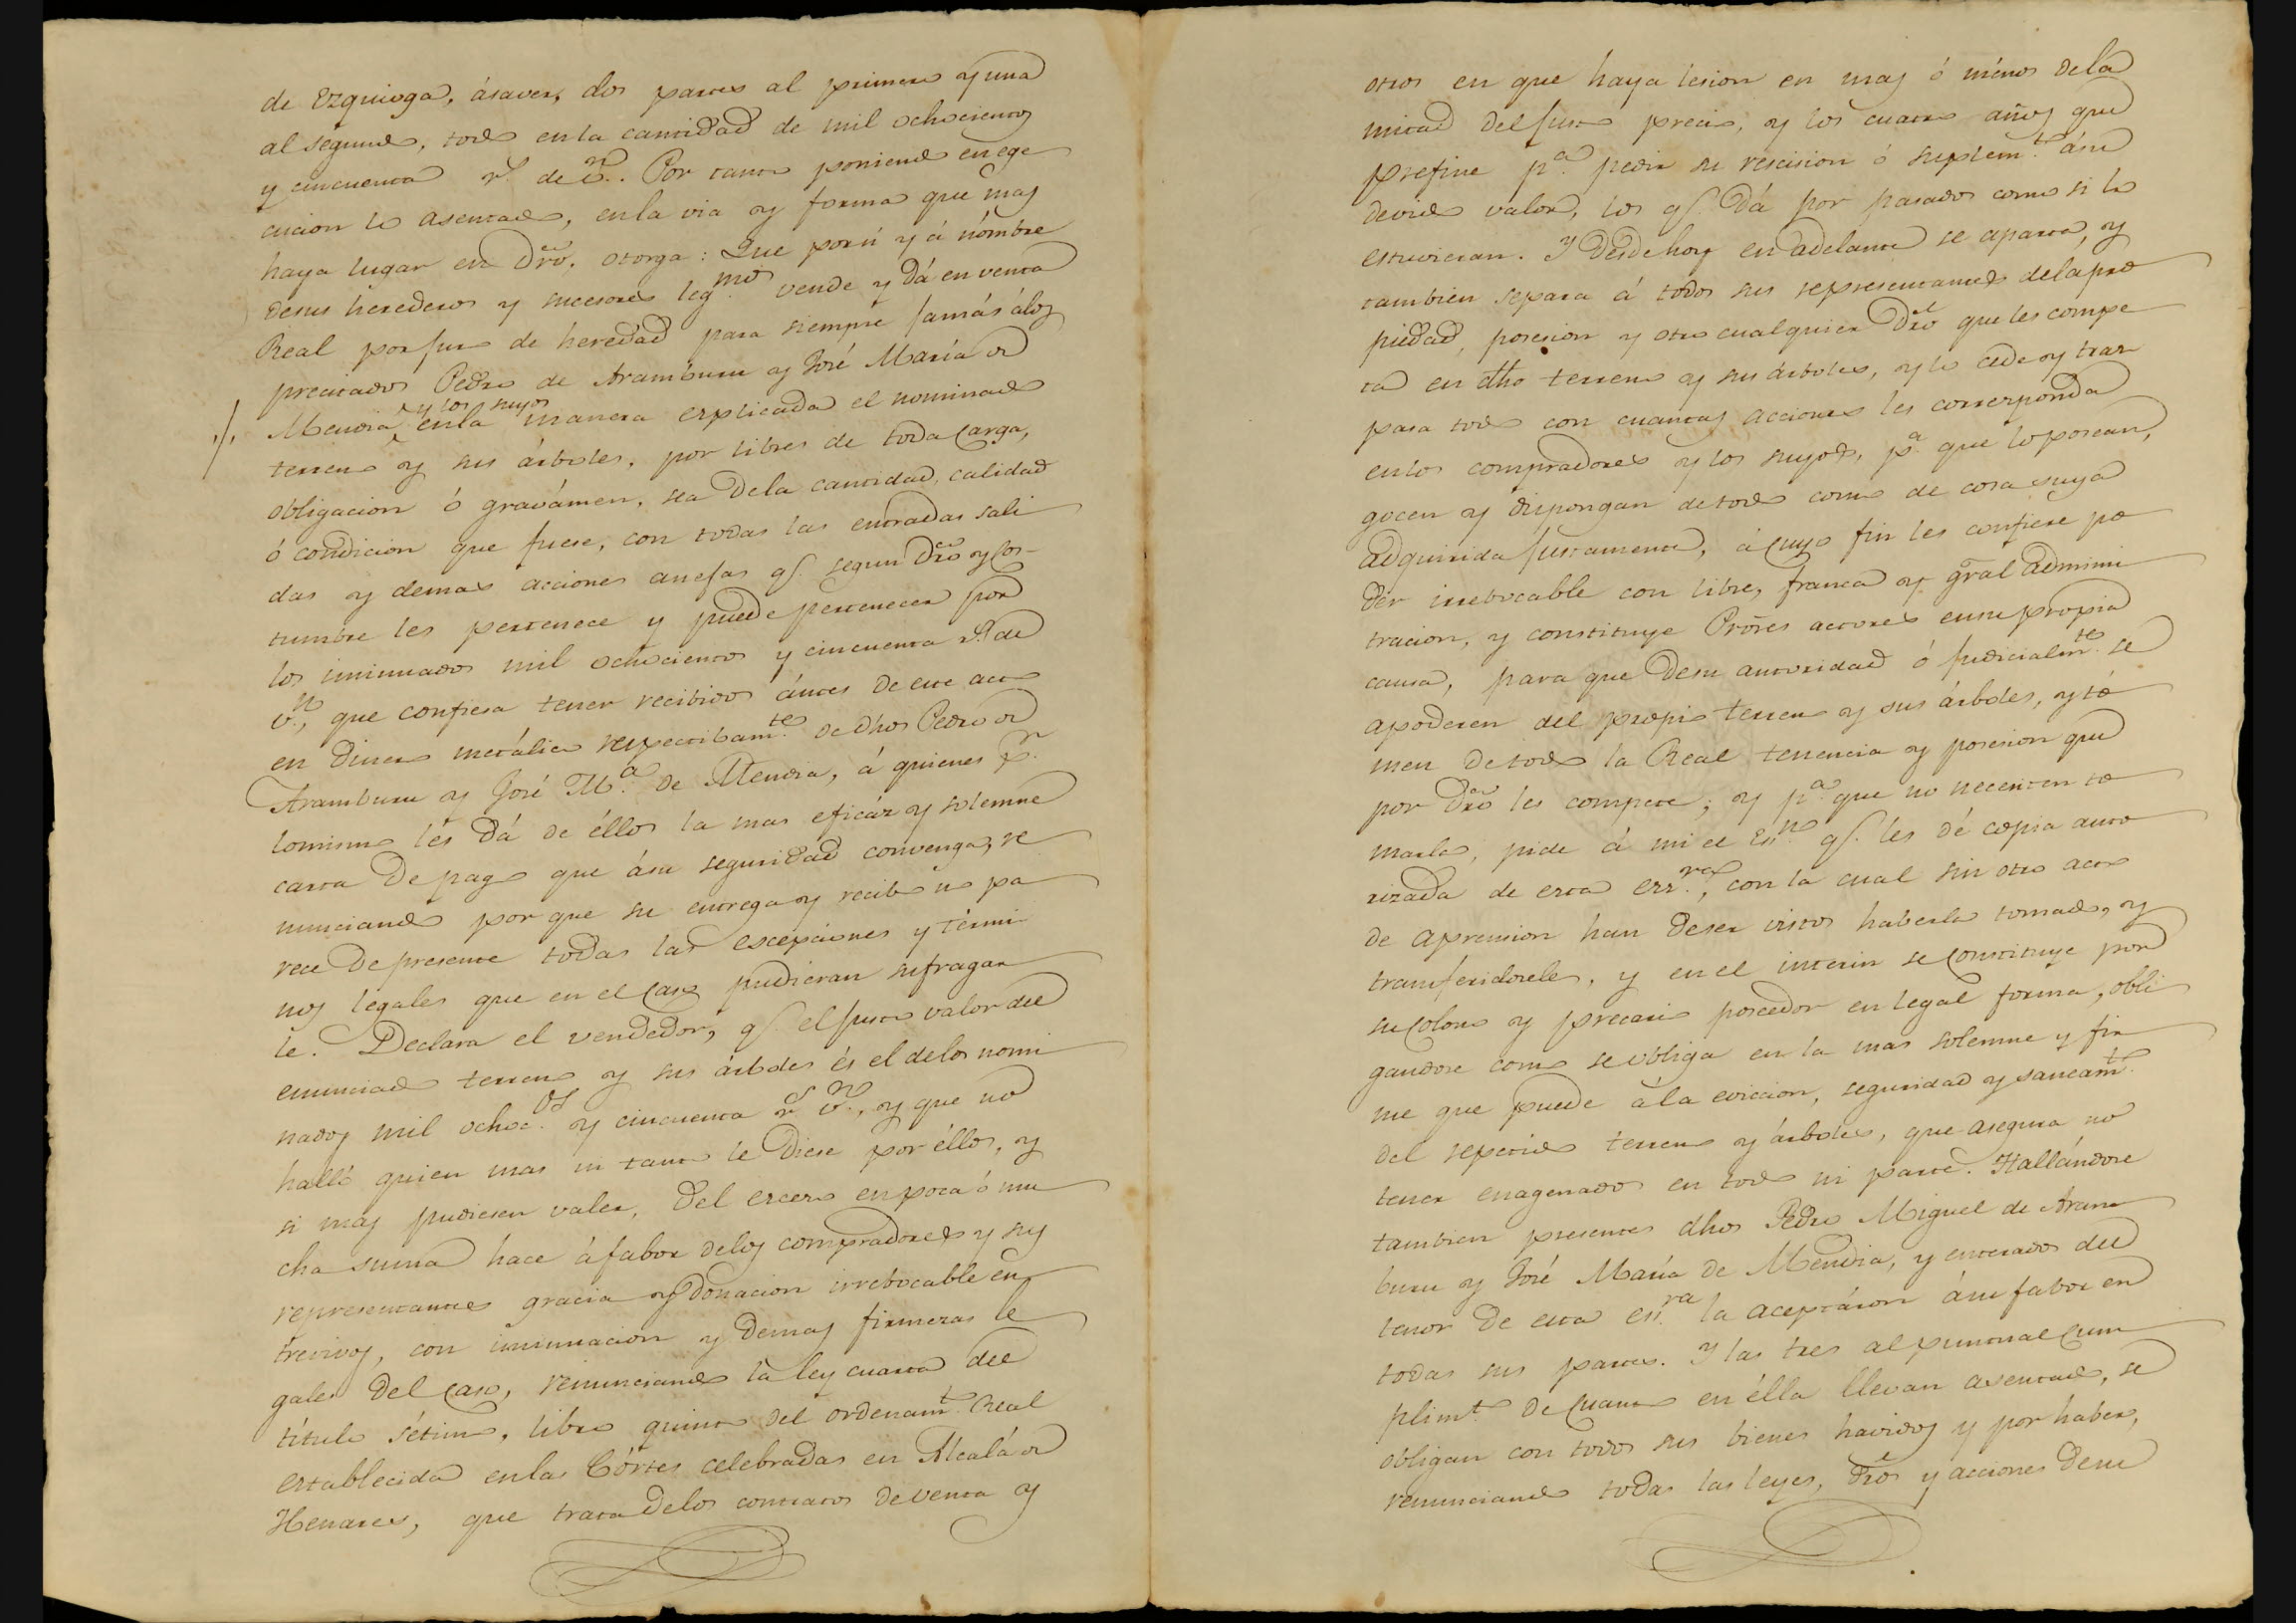 de Ezquioga, ásaver, dos partes al primero y una
al segundo, todo enla cantidad de mil ochocientos
y cincuenta r.s de v.n. Por tanto poniendo en ege
cucion lo asentado, enla via y forma que mas
haya lugar en dr̃o. otorga: Que por si y á nómbre
desus herederos y sucesores leg.mos vende y dá en venta
Real por juro de heredad para siempre jamás álos
precitados Pedro de Aramburu y José María de
Mendia ^y los suyos enla manera explicada el nominado
terreno y sus árboles, por libres de toda carga,
obligacion ó gravámen, sea dela cantidad, calidad
ó condicion que fuese, con todas las entradas sali
das y demas acciones anejas q.e segun dr̃o y cos-
tumbre les pertenece y puede pertenecer por
los insinuados mil ochocientos y cincuenta r.s de
v.n, que confiesa tener recibidos ántes de este acto
en dinero metálico respectibam.te de dhos Pedro de
Aramburu y José M.a de Mendia, á quienes p.r
lomismo lés dá de éllos la mas eficáz y solemne
carta de pago que ásu seguridad convenga, re
nunciando por que su entrega y recibo no pa
rece de presente todas las escepciones y térmi
nos legales que en el caso pudieran sufragar
le. Declara el vendedor, q.e el justo valor del
enunciado terreno y sus árboles és el delos nomi
nados mil ochoc.os y cincuenta r.s v.n, y que no
halló quien mas ni tanto le diese por éllos, y
si mas pudiesen valer, del exceso en poca ó mu
cha suma hace á fabor delos compradores y sus
representantes gracia y donacion irrebocable en
trevivos, con insinuacion y demas firmezas le
gales del caso, renunciando la ley cuarta del
título sétimo, libro quinto del ordenam.to Real
establecida enlas Córtes celebradas en Alcalá de
Henares, que trata delos contratos de venta y
otros en que haya lesion en mas ó ménos dela
mitad del justo precio, y los cuatro años que
prefine p.a pedir su rescision ó suplem.to ásu
devido valor, los q.e dá por pasados como si lo
estuvieran. Y desde hoy en adelante se aparta, y
tambien separa á todos sus representantes dela pro
piedad, posesion y otro cualquier dr̃o que les compe
ta en dho terreno y sus árboles, y lo cede y tras
pasa todo con cuantas acciones les corresponda
enlos compradores y los suyos, p.a que lo posean,
gocen y dispongan de todo como de cosa suya
adquirida justamente, á cuyo fin les confiere po
der irrebocable con libre, franca y gr̃al adminis
tracion, y constituye Prõres actores ensu propia
causa, para que desu autoridad ó judicialm.te se
apoderen del propio terreno y sus árboles, y to
men de todo la Real tenencia y posesion que
por dr̃o les compete; y p.a que no necesiten to
marla, pide á mi el Es.no q.e les dé copia auto
rizada de esta esr.ra, con la cual sin otro acto
de aprension han deser vistos haberla tomado, y
transferidosele, y en el interin se constituye por
su colono y precario poseedor en legal forma, obli
gandose como se obliga en la mas solemne y fir
me que puede ála eviccion, seguridad y saneam.to
del repetido terreno y árboles, que asegura no
tener enagenados en todo ni parte. Hallándose
tambien presentes dhos Pedro Miguel de Aram
buru y José María de Mendia, y enterados del
tenor de esta es.ra la aceptáron ásu fabor en
todas sus partes. Y las tres al puntual cum
plim.to de cuanto en élla llevan asentado, se
obligan con todos sus bienes havidos y por haber,
renunciando todas las leyes, dr̃os y acciones desu